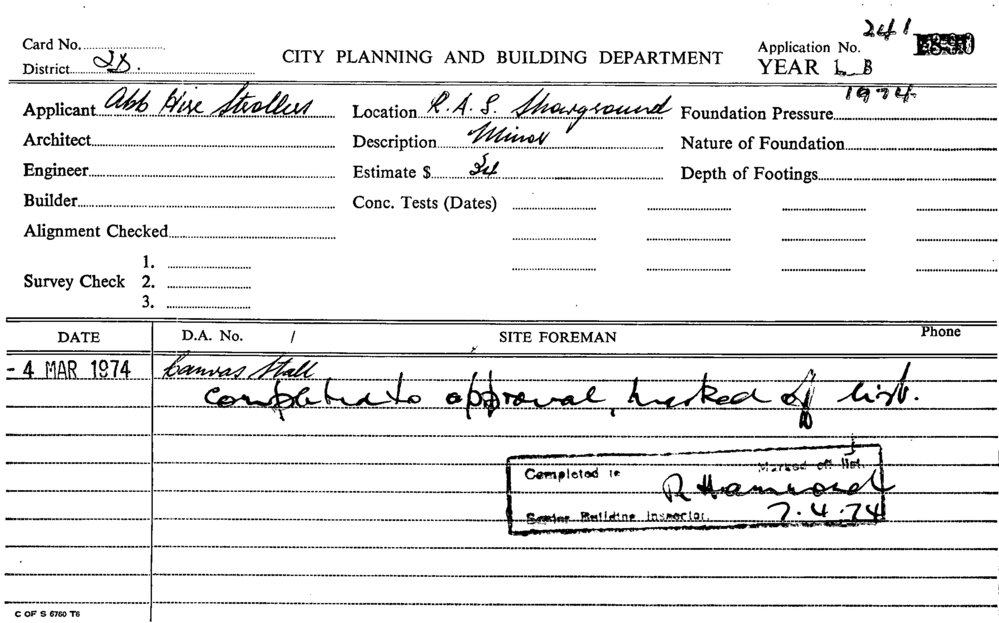 241
Card No.
District 2D.
CITY PLANNING AND BUILDING DEPARTMENT
Application No.
YEAR L B
1974
Applicant Abb Hire Strollers
Location R.A.S Showground
Foundation Pressure
Architect
Description Minor
Nature of Foundation
Engineer
Estimate $ 34
Depth of Footings
Builder
Conc. Tests (Dates)
Alignment Checked
Survey Check
1.
2.
3.
DATE D.A. No. / SITE FOREMAN Phone
- 4 MAR 1974 Canvas Stall
Completed to approval, marked of list.
Completed Marked off list.
R Hammond
Senior Building Inspector. 7.4.74
C OF S 6760 T6